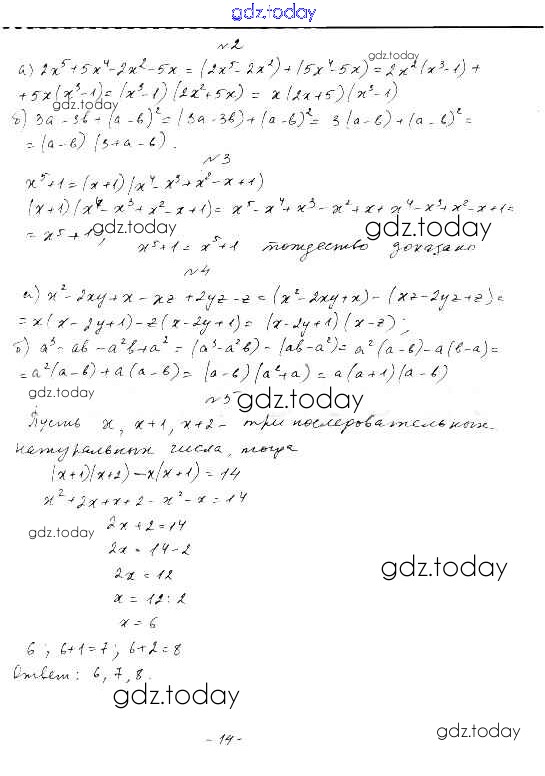 gdz.today
№2
gdz.today
а) 2x⁵+5x⁴-2x²-5x = (2x⁵-2x²)+(5x⁴-5x) = 2x²(x³-1)+
+5x(x³-1) = (x³-1)(2x²+5x) = x(2x+5)(x³-1)
gdz.today
б) 3a-3b+(a-b)² = (3a-3b)+(a-b)² = 3(a-b)+(a-b)² =
= (a-b)(3+a-b).
№3
x⁵+1 = (x+1)(x⁴-x³+x²-x+1)
(x+1)(x⁴-x³+x²-x+1) = x⁵-x⁴+x³-x²+x+x⁴-x³+x²-x+1 =
= x⁵+1,
gdz.today
gdz.today
x⁵+1 = x⁵+1 тождество доказано
№4
а) x²-2xy+x-xz+2yz-z = (x²-2xy+x)-(xz-2yz+z) =
= x(x-2y+1)-z(x-2y+1) = (x-2y+1)(x-z);
б) a³-ab-a²b+a² = (a³-a²b)-(ab-a²) = a²(a-b)-a(b-a) =
= a²(a-b)+a(a-b) = (a-b)(a²+a) = a(a+1)(a-b)
gdz.today
№5
gdz.today
Пусть x, x+1, x+2 - три последовательных
натуральных числа, тогда
(x+1)(x+2)-x(x+1) = 14
x²+2x+x+2-x²-x = 14
2x+2 = 14
gdz.today
2x = 14-2
2x = 12
gdz.today
x = 12:2
x = 6
6; 6+1=7; 6+2=8
Ответ: 6, 7, 8.
gdz.today
gdz.today
-14-